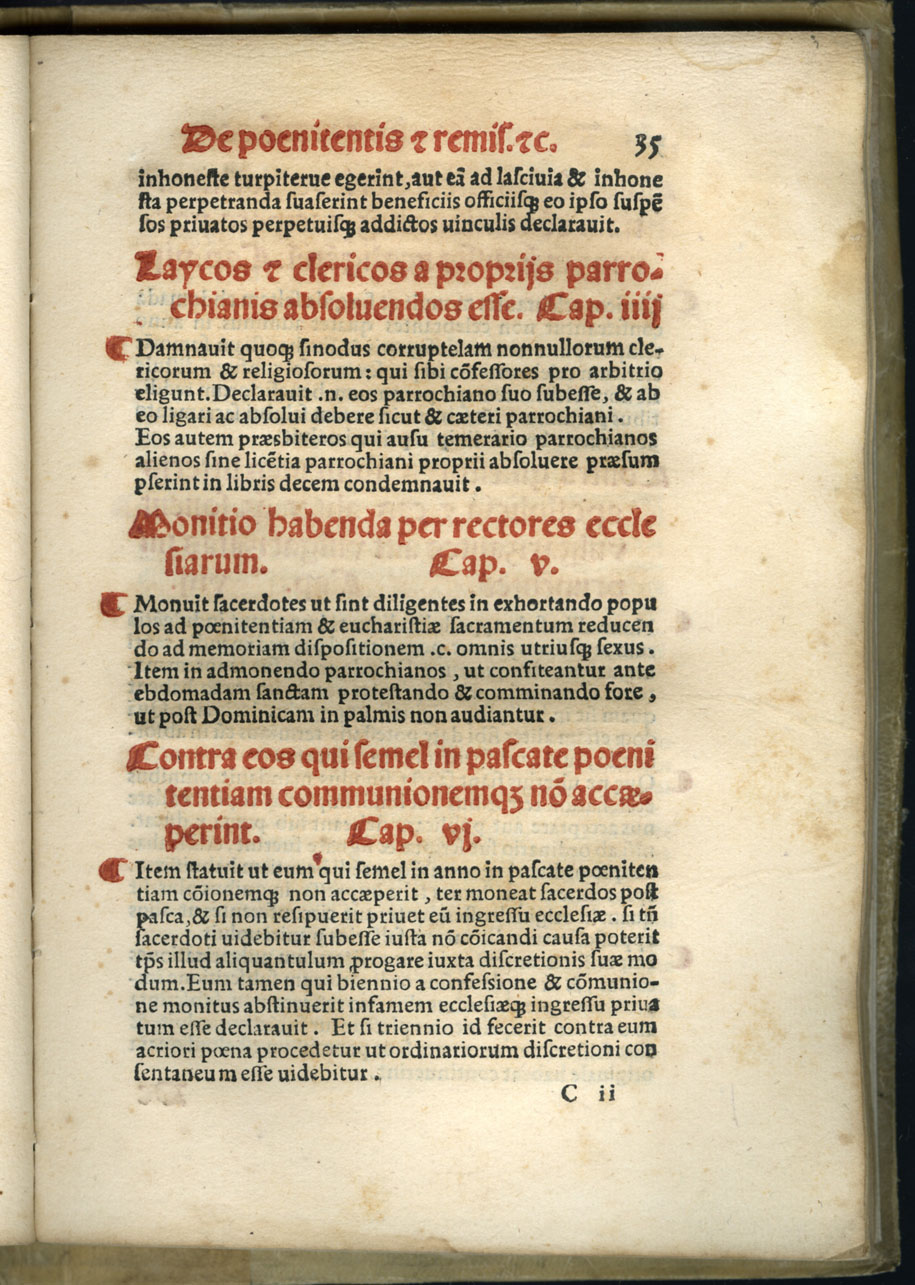 De poenitentis ⁊ remiſ.⁊c. 35
inhoneſte turpiterue egerint,aut eã ad laſciuia & inhone
ſta perpetranda ſuaſerint beneficiis officiiſqꝫ eo ipſo ſuſpẽ
ſos priuatos perpetuiſqꝫ addictos uinculis declarauit.
Laycos ⁊ clericos a proprijs parro-
chianis abſoluendos eſſe. Cap. iiij
¶ Damnauit quoqꝫ ſinodus corruptelam nonnullorum cle-
ricorum & religioſorum: qui ſibi cõfeſſores pro arbitrio
eligunt.Declarauit .n. eos parrochiano ſuo ſubeſſe, & ab
eo ligari ac abſolui debere ſicut & cæteri parrochiani.
Eos autem præsbiteros qui auſu temerario parrochianos
alienos ſine licẽtia parrochiani proprii abſoluere præſum
pſerint in libris decem condemnauit.
Monitio habenda per rectores eccle
ſiarum. Cap. v.
¶ Monuit ſacerdotes ut ſint diligentes in exhortando popu
los ad pœnitentiam & euchariſtiæ ſacramentum reducen
do ad memoriam diſpoſitionem .c. omnis utriuſqꝫ ſexus.
Item in admonendo parrochianos, ut confiteantur ante
ebdomadam ſanctam proteſtando & comminando fore,
ut poſt Dominicam in palmis non audiantur.
Contra eos qui ſemel in paſcate poeni
tentiam communionemqꝫ nõ accæ-
perint. Cap. vj.
¶ Item ſtatuit ut eum qui ſemel in anno in paſcate pœniten
tiam cõionemqꝫ non accæperit, ter moneat ſacerdos poſt
paſca,& ſi non reſipuerit priuet eũ ingreſſu eccleſiæ. ſi tñ
ſacerdoti uidebitur ſubeſſe iuſta nõ cõicandi cauſa poterit
tp̃s illud aliquantulum ꝓrogare iuxta diſcretionis ſuæ mo
dum.Eum tamen qui biennio a confeſſione & cõmunio-
ne monitus abſtinuerit infamem eccleſiæqꝫ ingreſſu priua
tum eſſe declarauit. Et ſi triennio id fecerit contra eum
acriori pœna procedetur ut ordinariorum diſcretioni con
ſentaneum eſſe uidebitur.
C ii